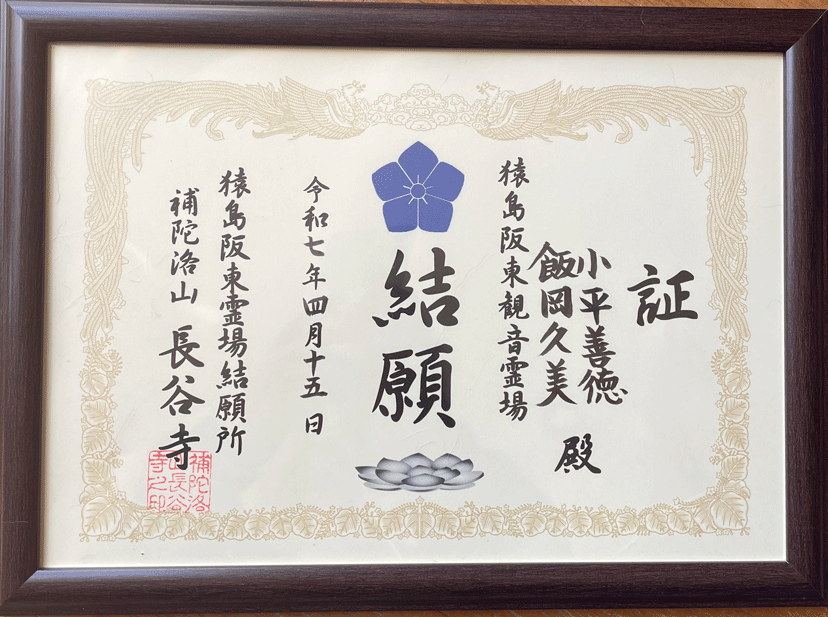 証
小平善徳
飯岡久美
殿
猿島阪東観音霊場
結願
令和七年四月十五日
猿島阪東霊場結願所
補陀洛山 長谷寺
補陀洛
山長谷
寺之印